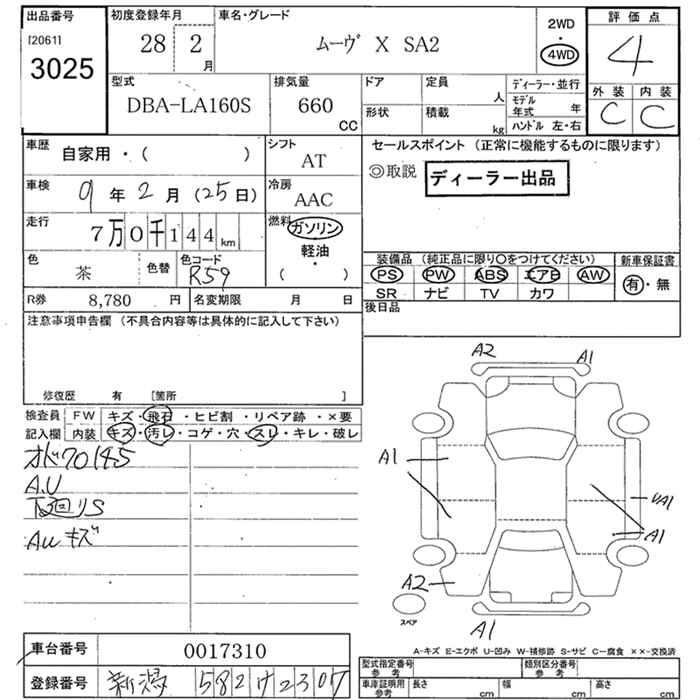 出品番号
[2061]
3025
初度登録年月
28 2
月
車名・グレード
ムーヴ X SA2
2WD
・
4WD
評価点
4
外装 内装
C C
型式
DBA-LA160S
排気量
660
CC
ドア
定員
人
形状
積載
kg
ディーラー・並行
モデル年式 年
ハンドル 左・右
車歴
自家用・( )
シフト
AT
車検
9年2月(25日)
冷房
AAC
走行
7万0千144km
燃料
ガソリン
軽油・
( )
色
茶
色替
色コード
R59
R券
8,780 円
名変期限 月 日
セールスポイント (正常に機能するものに限ります)
◎取説
ディーラー出品
装備品 (純正品に限り○をつけてください)
PS PW ABS エアB AW
SR ナビ TV カワ
新車保証書
有・無
後日品
注意事項申告欄 (不具合内容等は具体的に記入して下さい)
修復歴 有 [箇所 ]
検査員
記入欄
FW キズ・飛石・ヒビ割・リペア跡・×要
内装 キズ・汚レ・コゲ・穴・スレ・キレ・破レ
オド70145
A.U
下回リS
AU キズ
A2
A1
A1
A1
A2
A1
スペア
A-キズ E-エクボ U-凹み W-補修跡 S-サビ C-腐食 ××-交換済
車台番号
0017310
登録番号
新潟 582 2307
型式指定番号
参考
類別区分番号
参考
車庫証明用
参考
長さ cm
幅 cm
高さ cm